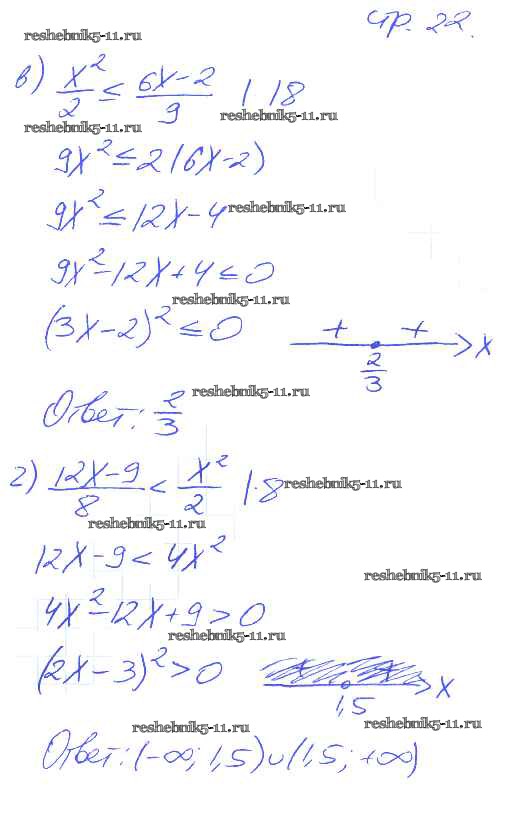 стр. 22.
reshebnik5-11.ru
в) x²/2 ≤ (6x-2)/9 | 18
reshebnik5-11.ru
reshebnik5-11.ru
9x² ≤ 2(6x-2)
9x² ≤ 12x-4
reshebnik5-11.ru
9x²-12x+4 ≤ 0
reshebnik5-11.ru
(3x-2)² ≤ 0
+ + x
2/3
reshebnik5-11.ru
Ответ: 2/3
г) (12x-9)/8 < x²/2 |·8
reshebnik5-11.ru
reshebnik5-11.ru
12x-9 < 4x²
reshebnik5-11.ru
4x²-12x+9 > 0
reshebnik5-11.ru
(2x-3)² > 0
x
1,5
reshebnik5-11.ru
reshebnik5-11.ru
Ответ: (-∞; 1,5)∪(1,5; +∞)